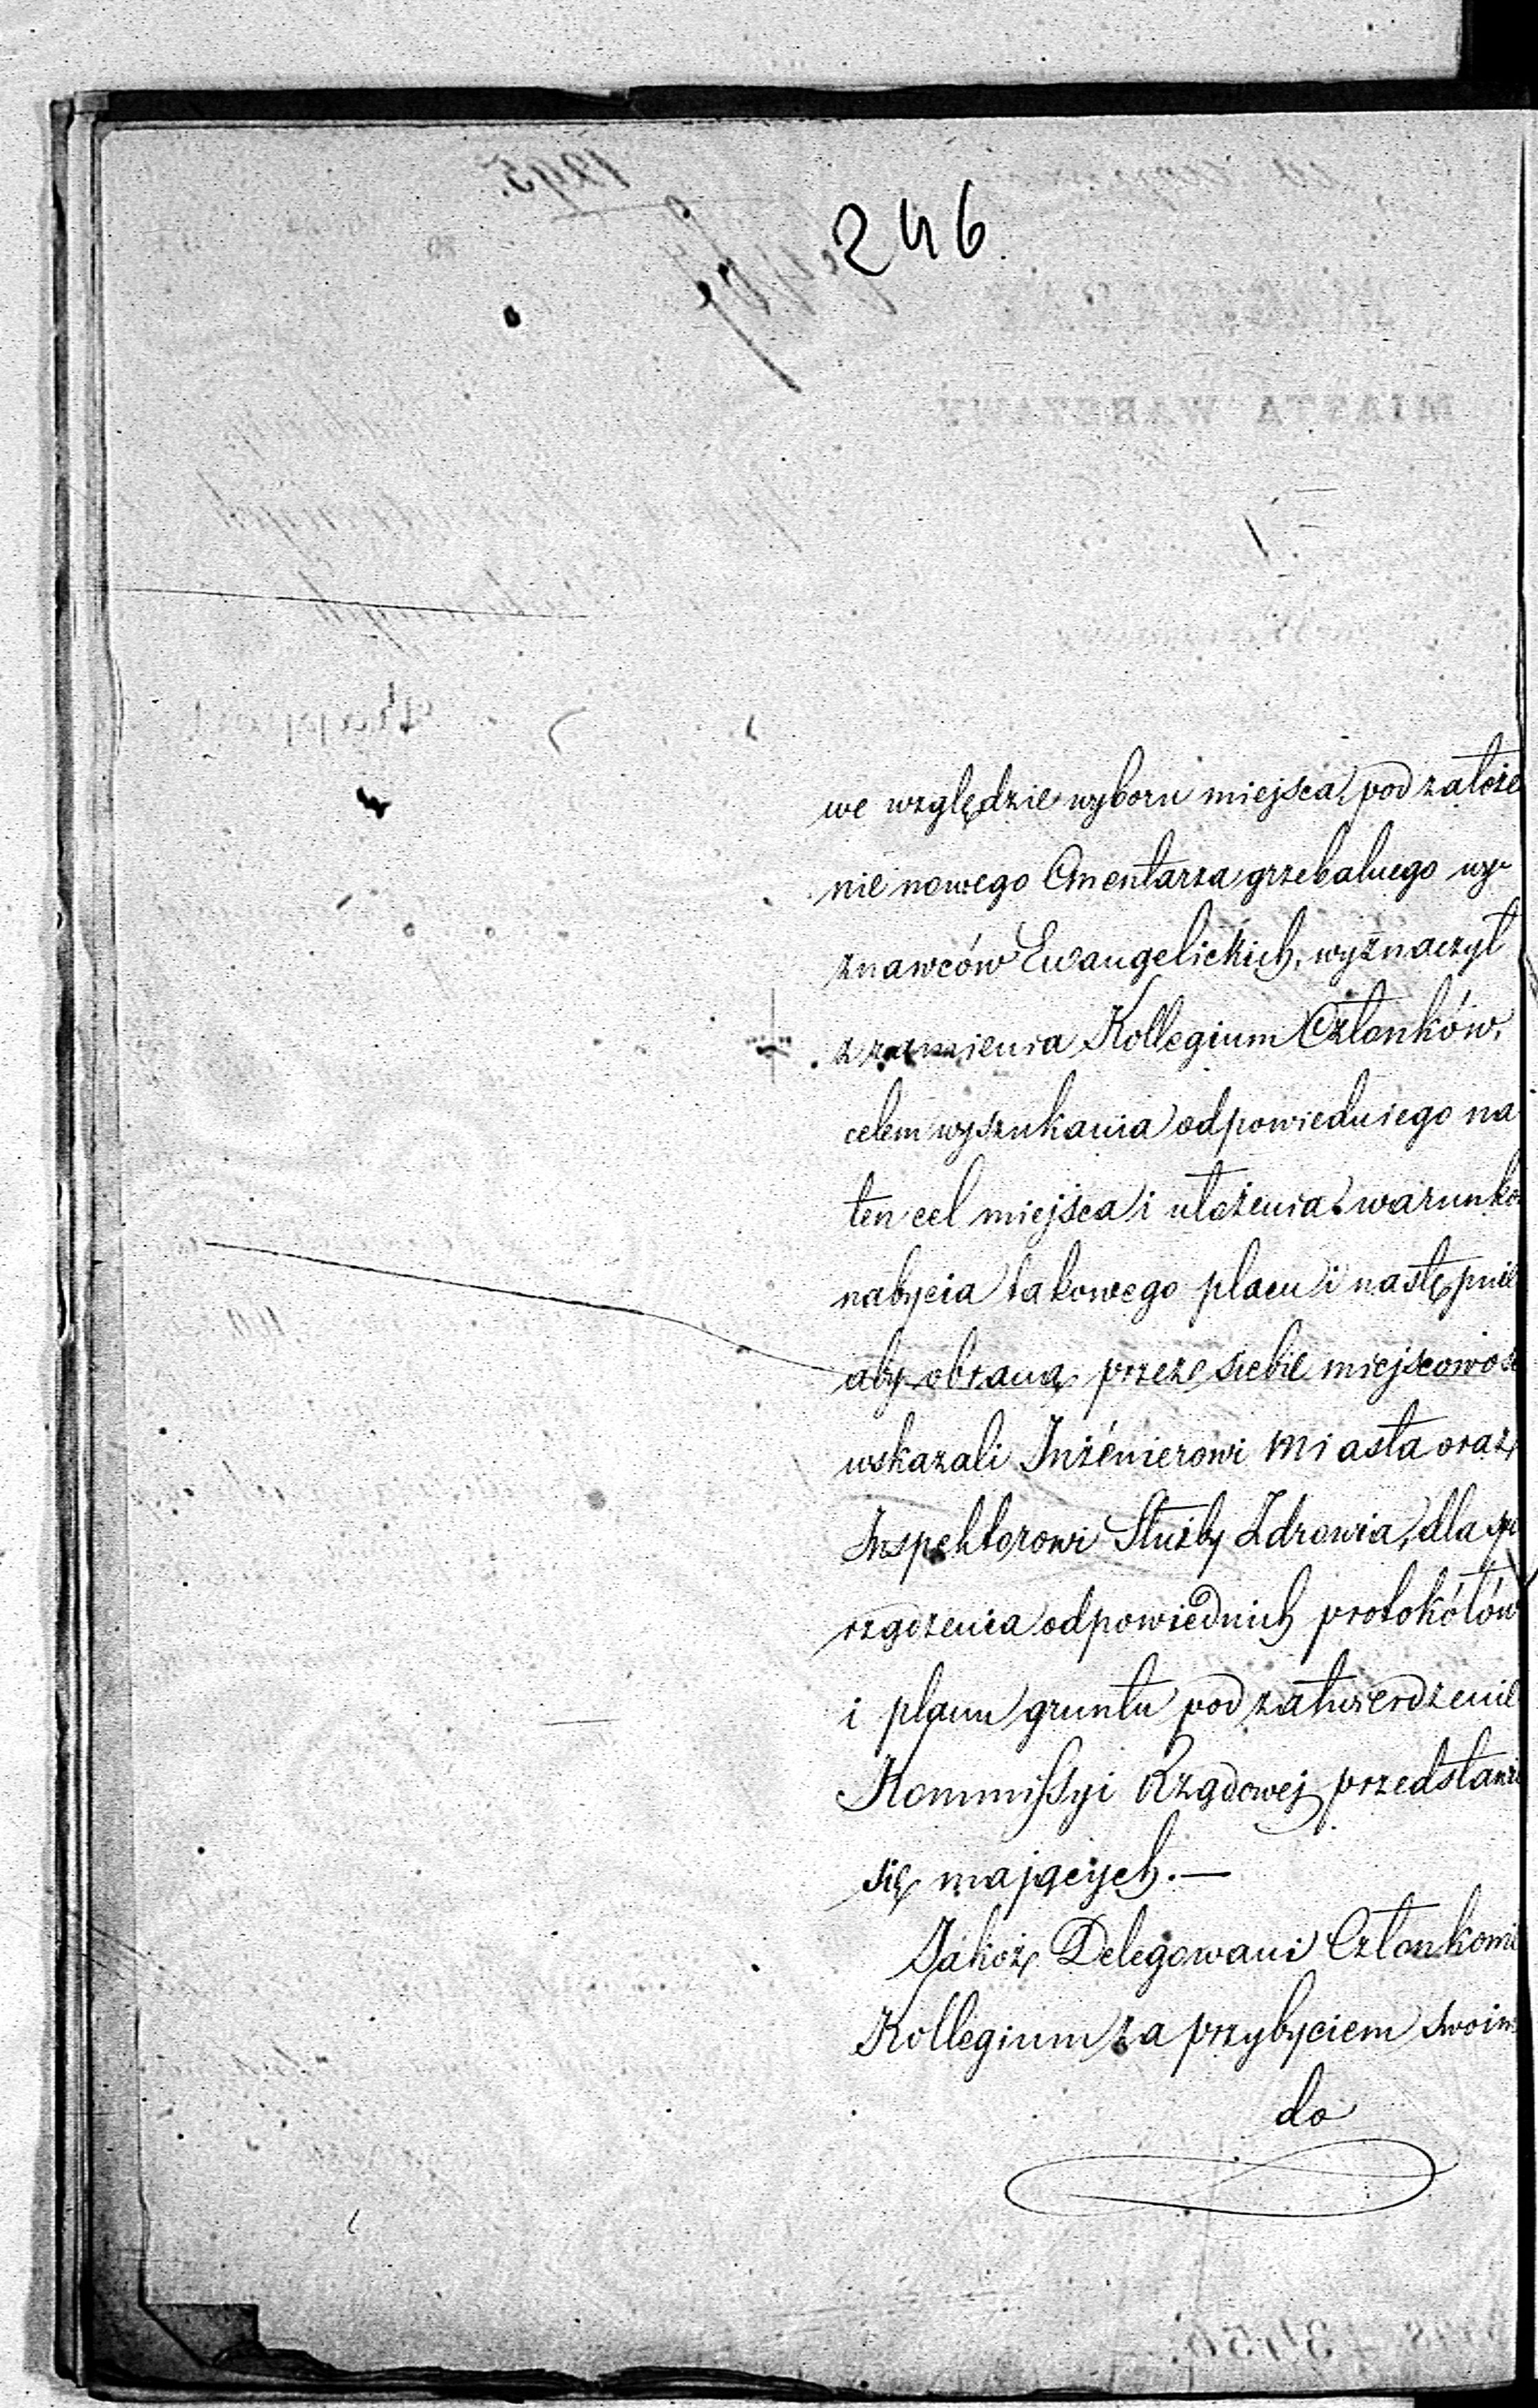 246.
we względzie wyboru miejsca, pod założe
nie nowego Cmentarza grzebalnego wy-
znawców Ewangelickich, wyznaczył
z ramienia Kollegium Członków,
celem wyszukania odpowiedniego na
ten cel miejsca i ułożenia warunkó
nabycia takowego placu i następnie
aby obraną przeze siebie miejscowość
wskazali Inżenierowi Miasta oraz
Inspektorowi Służby Zdrowia, dla spo
rządzenia odpowiednich protokółów
i planu gruntu pod zatwierdzenie
Kommissyi Rządowej przedstawi
się mających.—
Jakoż Delegowani Członkowie
Kollegium za przybyciem swoim
do